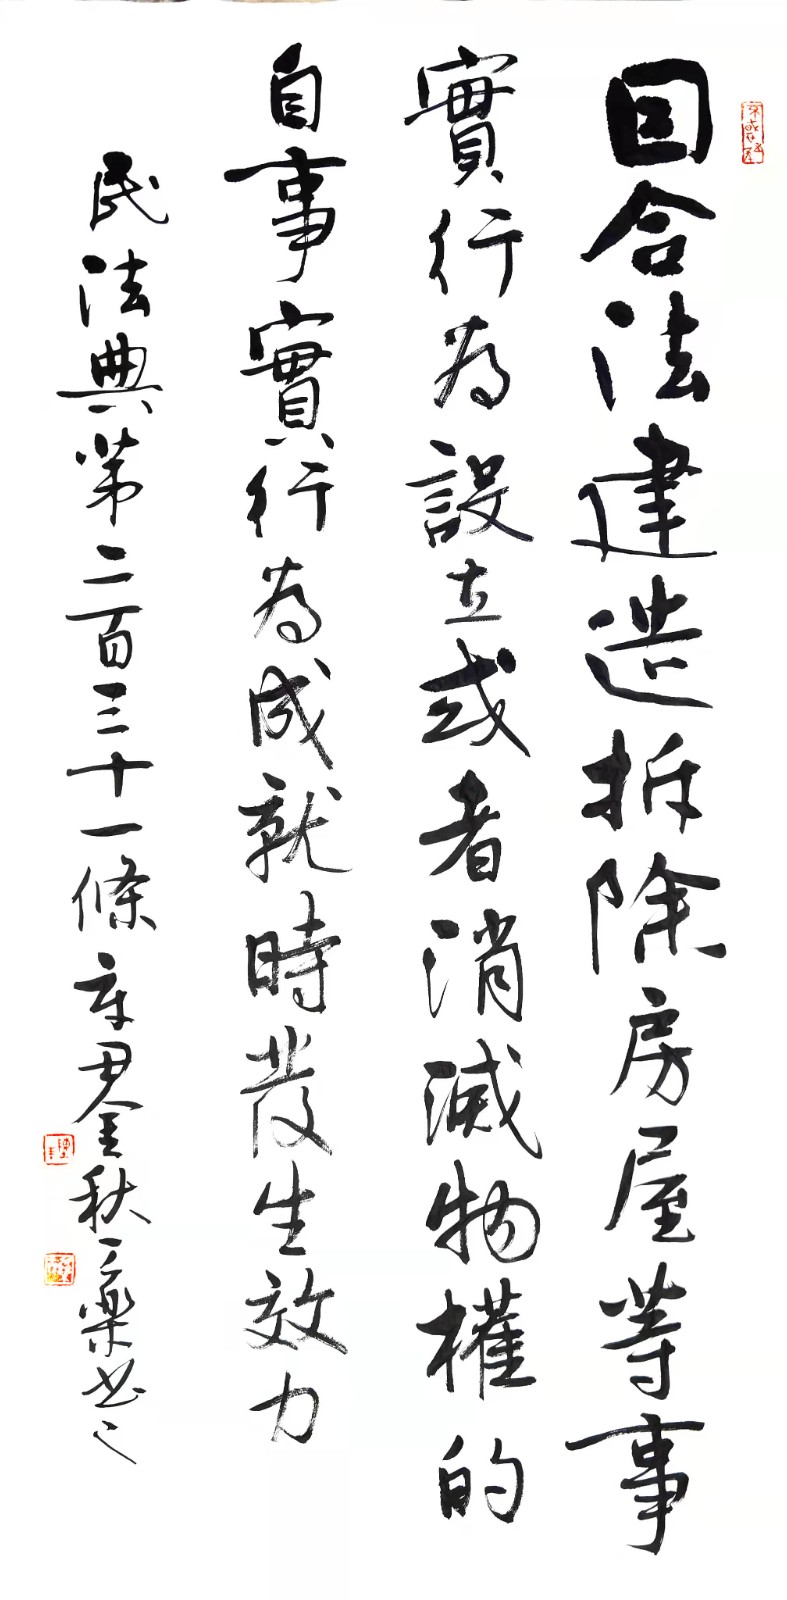 因合法建造拆除房屋等事
實行為設立或者消滅物權的
自事實行為成就時發生效力
民法典第二百三十一條辛丑金秋一樂書之